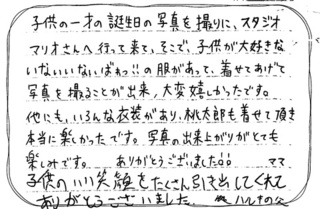 子供の一才の誕生日の写真を撮りに、スタジオ
マリオさんへ行って来て、そこで、子供が大好きな
いないいないばぁっ!!の服があって、着せてあげて
写真を撮ることが出来、大変嬉しかったです。
他にも、いろんな衣装があり、桃太郎も着せて頂き
本当に楽しかったです。写真の出来上がりがとても
楽しみです。 ありがとうございました。。 ママ
子供のいい笑顔をたくさん引き出してくれて
ありがとうございました。 ハルナの父